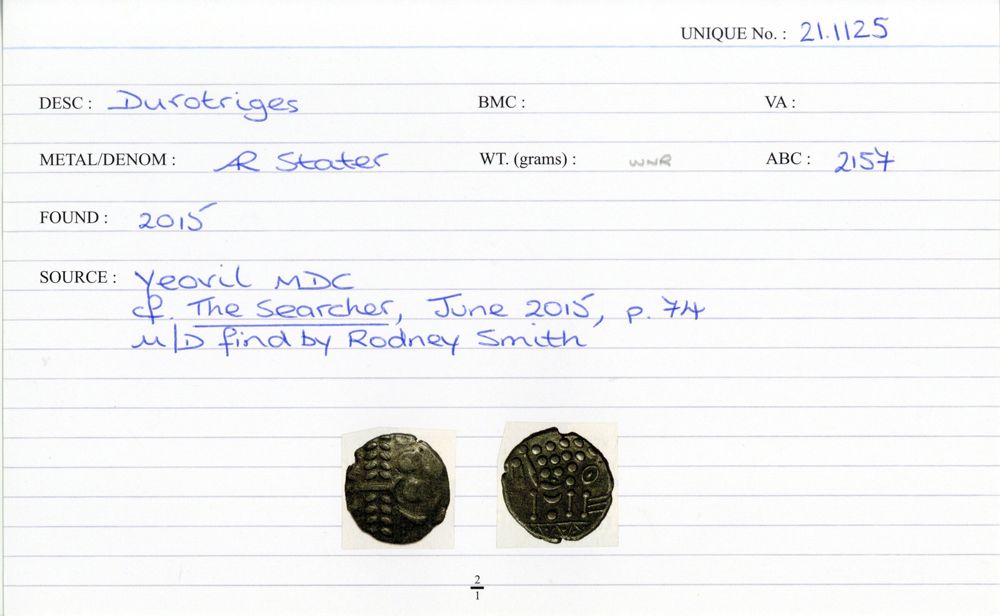 UNIQUE No. : 21.1125
DESC : Durotriges BMC : VA :
METAL/DENOM : AR Stater WT. (grams) : WNR ABC : 2157
FOUND : 2015
SOURCE : Yeovil MDC
cf. The Searcher, June 2015, p. 74
M/D find by Rodney Smith
2
1